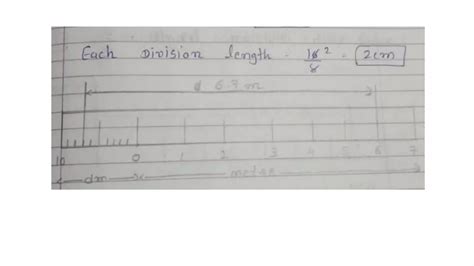 Each Division length = 16/8 2 = 2cm
6.7 m
10 0 1 2 3 4 5 6 7
dm metre